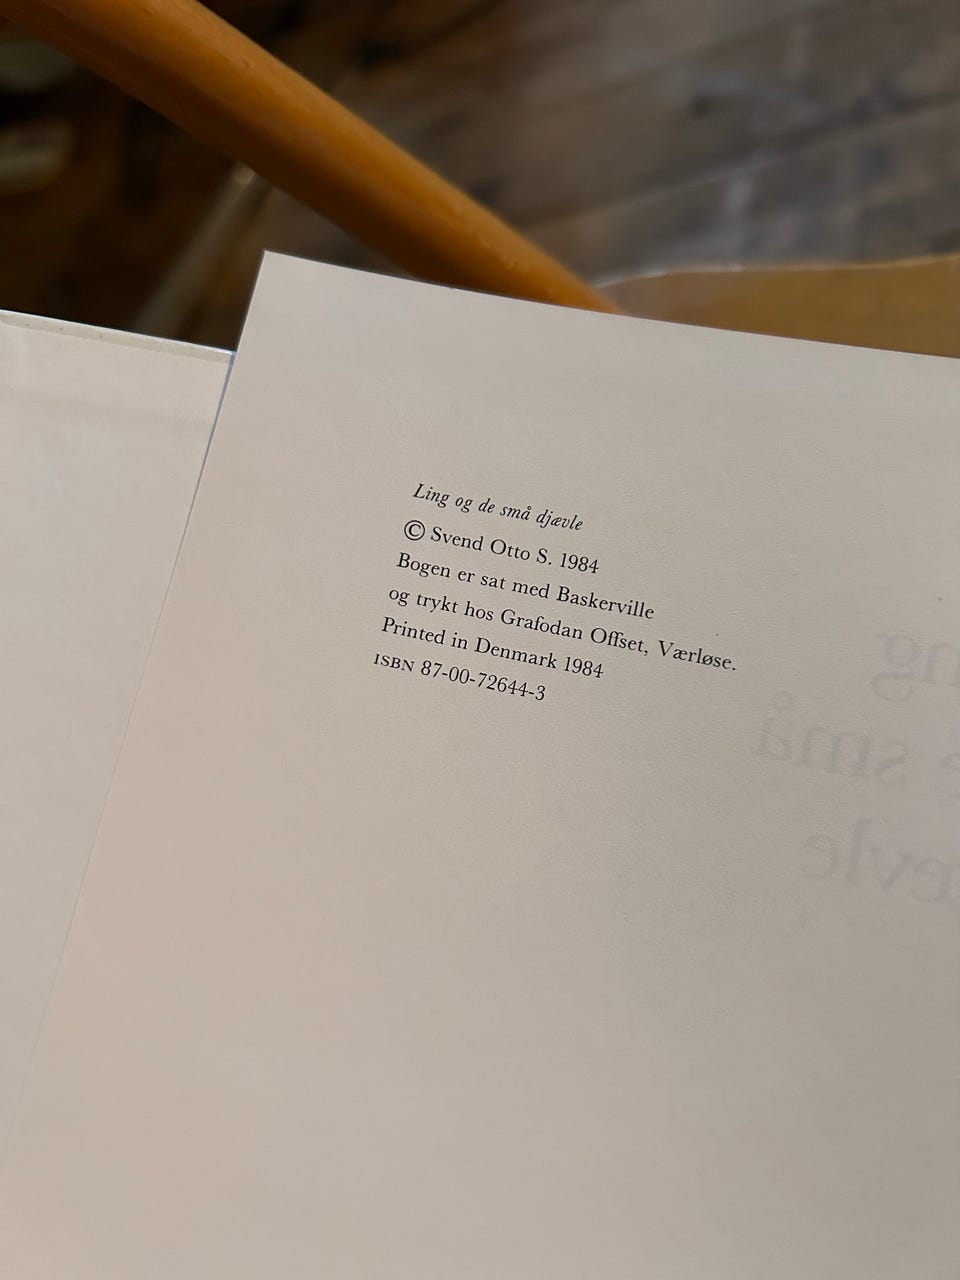 Ling og de små djævle
© Svend Otto S. 1984
Bogen er sat med Baskerville
og trykt hos Grafodan Offset, Værløse.
Printed in Denmark 1984
ISBN 87-00-72644-3
små